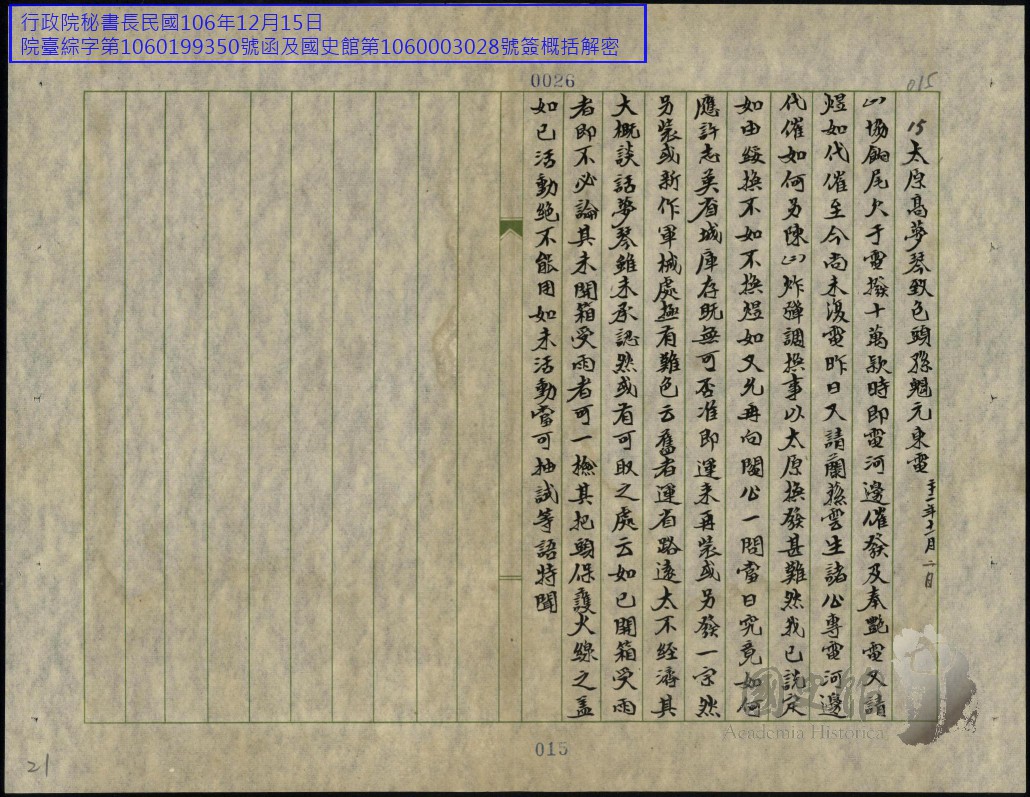 行政院秘書長民國106年12月15日
院臺綜字第1060199350號函及國史館第1060003028號簽概括解密
0026
015
15太原高夢琴致包頭孫魁元東電 二十二年十二月二日
山協餉尾欠于電撥十萬款時即電河邊催發及奉艷電又請
煜如代催至今尚未復電昨日又請蘭蓀雲生諸公專電河邊
代催如何另陳山炸彈調換事以太原換發甚難然我已說定
如由綏換不如不換煜如又允再向閻公一問當日究竟如何
應許志奚省城庫存既無可否准即運來再裝或另發一宗然
另裝或新作軍械處極有難色云舊者運省路遠太不經濟其
大概談話夢琴雖未承認然或有可取之處云如已開箱受雨
者即不必論其未開箱受雨者可一撿其把頭保護火線之蓋
如已活動絕不能用如未活動當可抽試等語特聞
015
21
國史館
Academia Historica